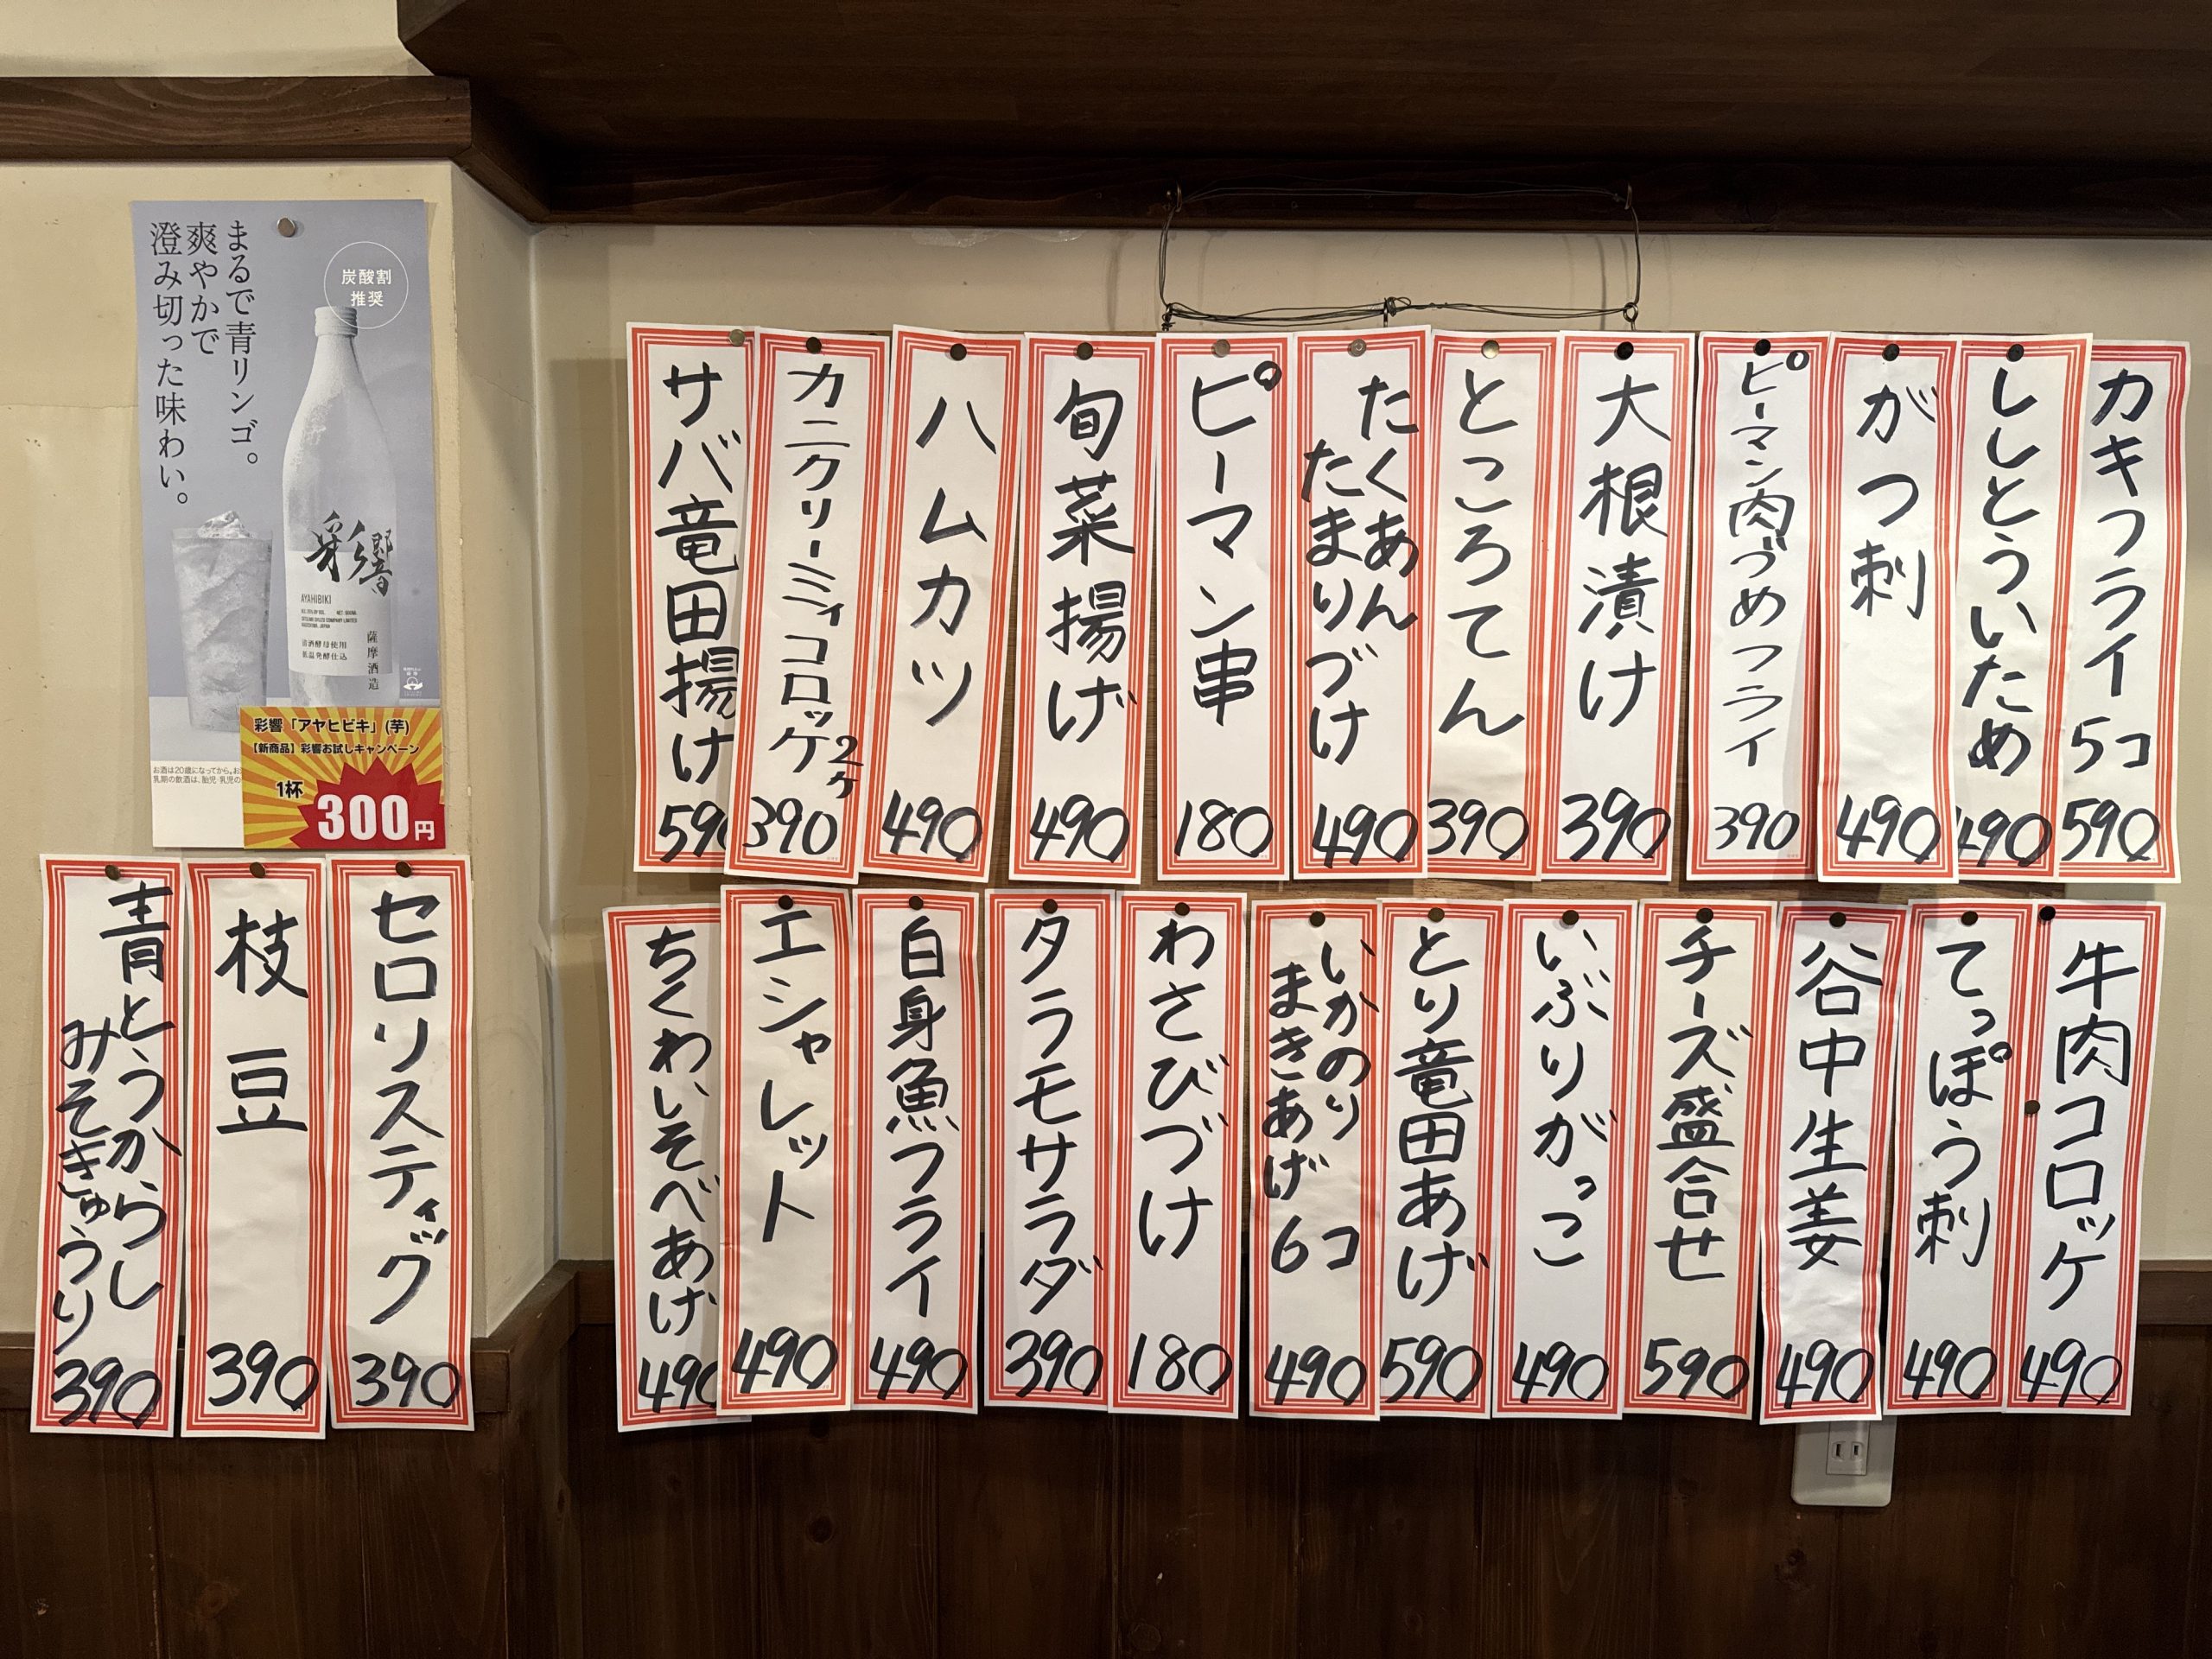 まるで青リンゴ。
爽やかで
澄み切った味わい。
炭酸割
推奨
彩響
AYAHIBIKI
薩摩酒造
彩響「アヤヒビキ」(芋)
【新商品】彩響お試しキャンペーン
1杯
300円
カキフライ
5コ
590
ししとういため
490
がつ刺
490
ピーマン肉づめフライ
390
大根漬け
390
ところてん
390
たくあん
たまりづけ
490
ピーマン串
180
旬菜揚げ
490
ハムカツ
490
カニクリーミィコロッケ
2ヶ
390
サバ竜田揚け
590
牛肉コロッケ
490
てっぽう刺
490
谷中生姜
490
チーズ盛合せ
590
いぶりがっこ
490
とり竜田あげ
590
いかのり
まきあげ
6コ
490
わさびづけ
180
タラモサラダ
390
白身魚フライ
490
エシャレット
490
ちくわいそべあげ
490
セロリスティック
390
枝豆
390
青とうからし
みそきゅうり
390